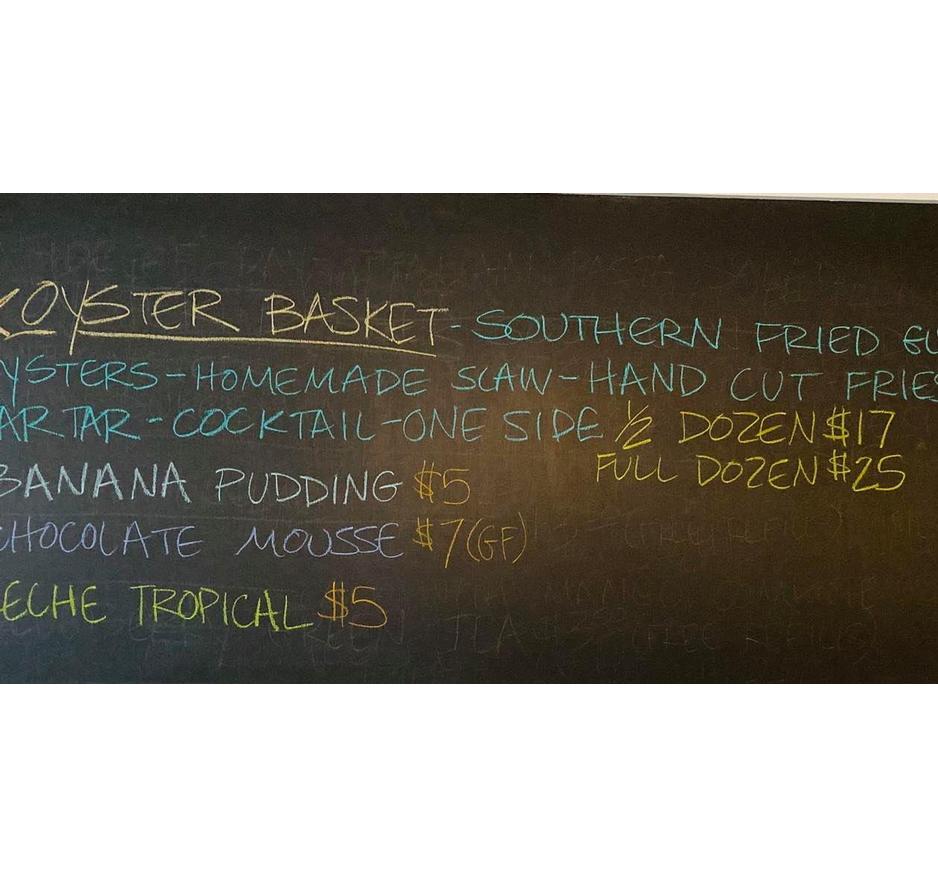 OYSTER BASKET - SOUTHERN FRIED
YSTERS - HOMEMADE SLAW - HAND CUT FRIES
ARTAR - COCKTAIL - ONE SIDE ½ DOZEN $17
FULL DOZEN $25
BANANA PUDDING $5
CHOCOLATE MOUSSE $7 (GF)
ECHE TROPICAL $5